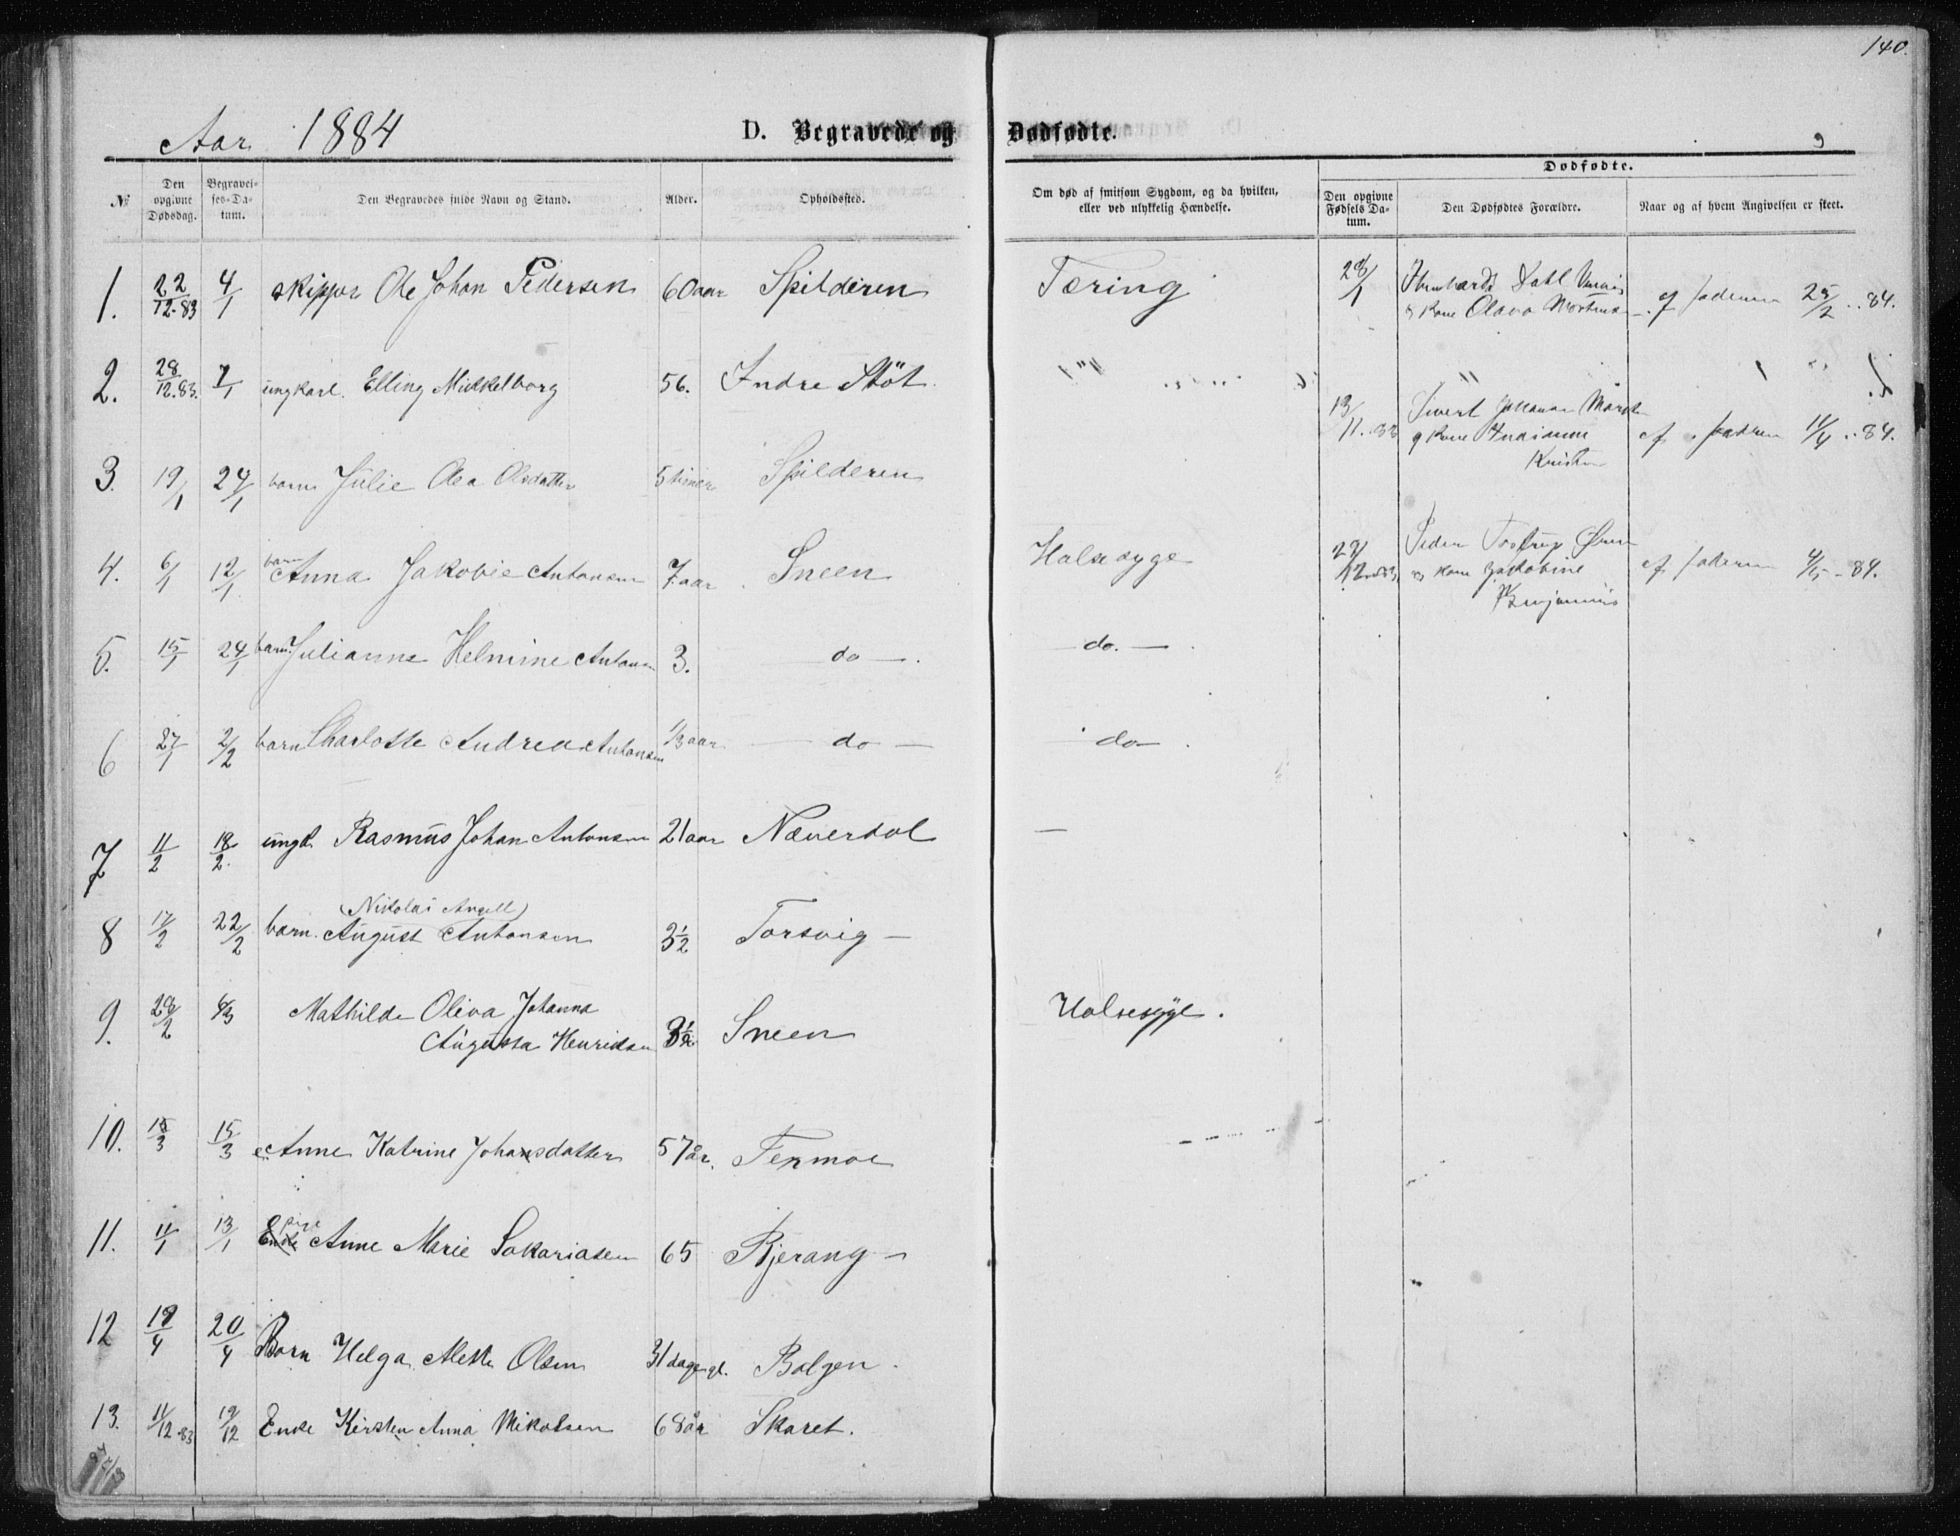 140.
Aar 1884 D. Begravede og Dødfødte.
9
Dødfødte.
№ Den opgivne Dødsdag. Begravelses-Datum. Den Begravedes fulde Navn og Stand. Alder. Opholdssted. Om død af smitsom Sygdom, og da hvilken, eller ved ulykkelig Hændelse. Den opgivne Fødsels Datum. Den Dødfødtes Forældre. Naar og af hvem Angivelsen er skeet.
1. 22/12.83 4/1 skipper Ole Johan Pedersen 60 aar Spilderen Tæring 28/1 Dahl
& Kone Olava af faderen 25/2 .. 84.
2. 28/12.83. 7/1 ungkarl. Elling Mikkelborg 56. Indre Støt
13/11..83 Sivert Johannes
& Kone af faderen 11/4 .. 84.
3. 19/1 24/1 barn Julie Olea Olsdatter 5 timer Spilderen
4. 6/1 12/1 barn Anna Jakobie Antonsen 7 aar Sneen Halssyge 29/12..83 Peder Tostrup
& Kone Jakobine af faderen 4/5 - 84.
5. 15/1 24/1 barn Julianne Helmine Antonsen 3. do — . do. —
6 27/1 2/2 barn Charlotte Andrea Antonsen 1/3 aar — do — do —
7 11/2 18/2. ungk. Rasmus Johan Antonsen 21 aar Næverdal —
(Nikolai Angell)
8 17/2 22/2 barn. August Antonsen 3½ Torsvig —
9. 28/2 6/3 Mathilde Oliva Johanna
Augusta Henriksen 3½ Sneen Halssyge.
10. 13/3 15/3 Anne Katrine Johansdatter 57 år. Tenmoe
11. 11/1 13/1 Enke pige Anne Marie Sakariasen 65 Bjerang —
12 19/4 20/4 Barn Helga Mette Olsen 31 dage gl. Bolgen.
13. 11/12.83 19/12 Enke Kirsten Anna Mikalsen 68 år Skaret.